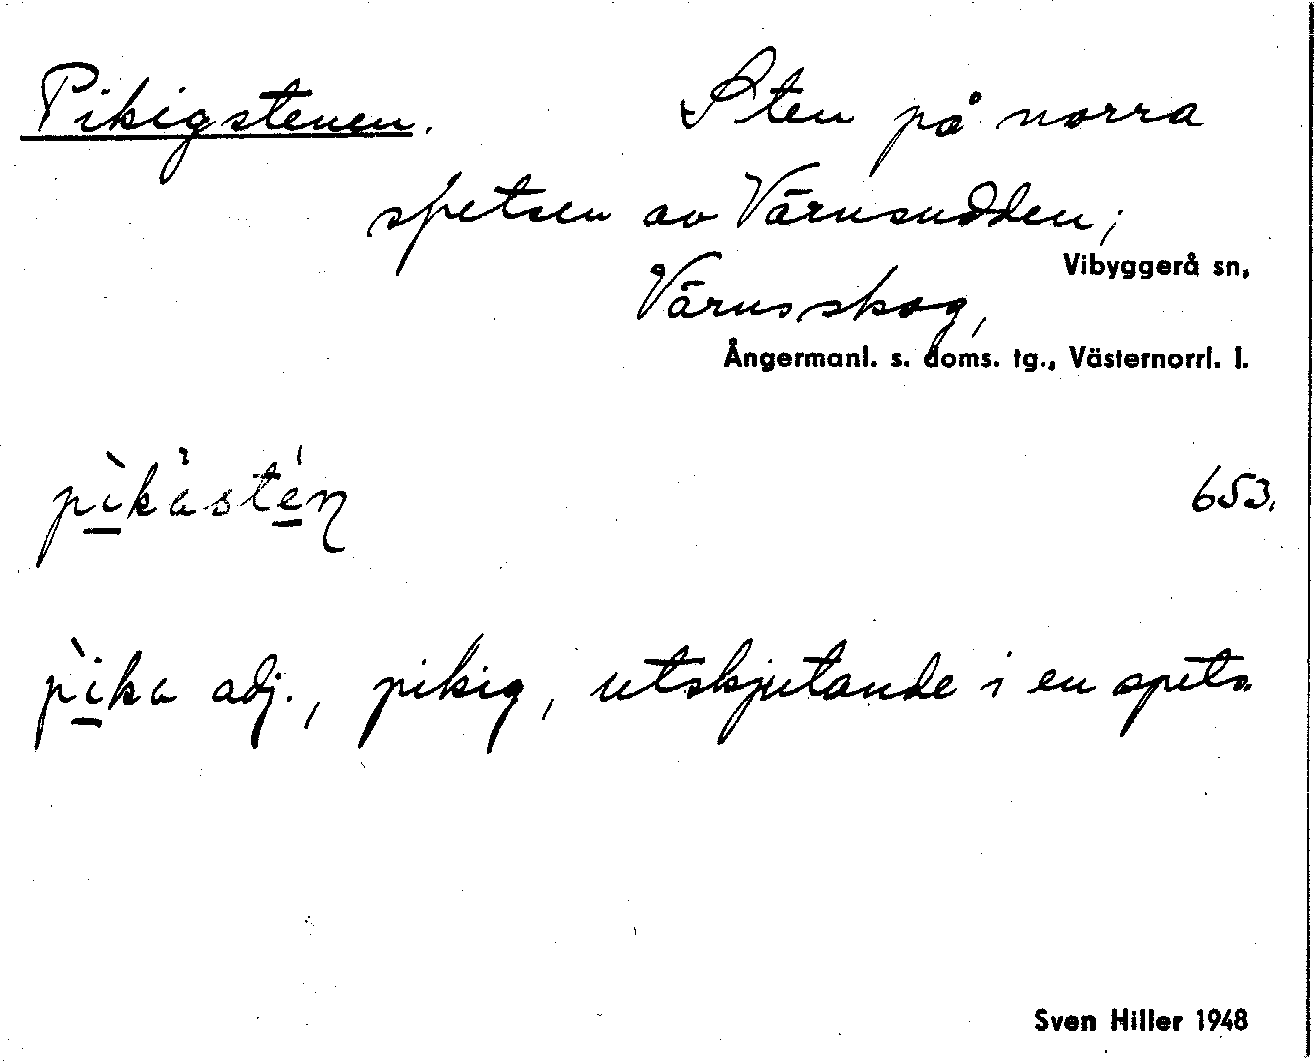 Pikigstenen. Sten på norra
spetsen av Värnsudden;
Vibyggerå sn,
Värnsskog,
Ångermanl. s. doms. tg., Västernorrl. l.
pìkàstén 653.
pìka adj., pikig, utskjutande i en spets
Sven Hiller 1948